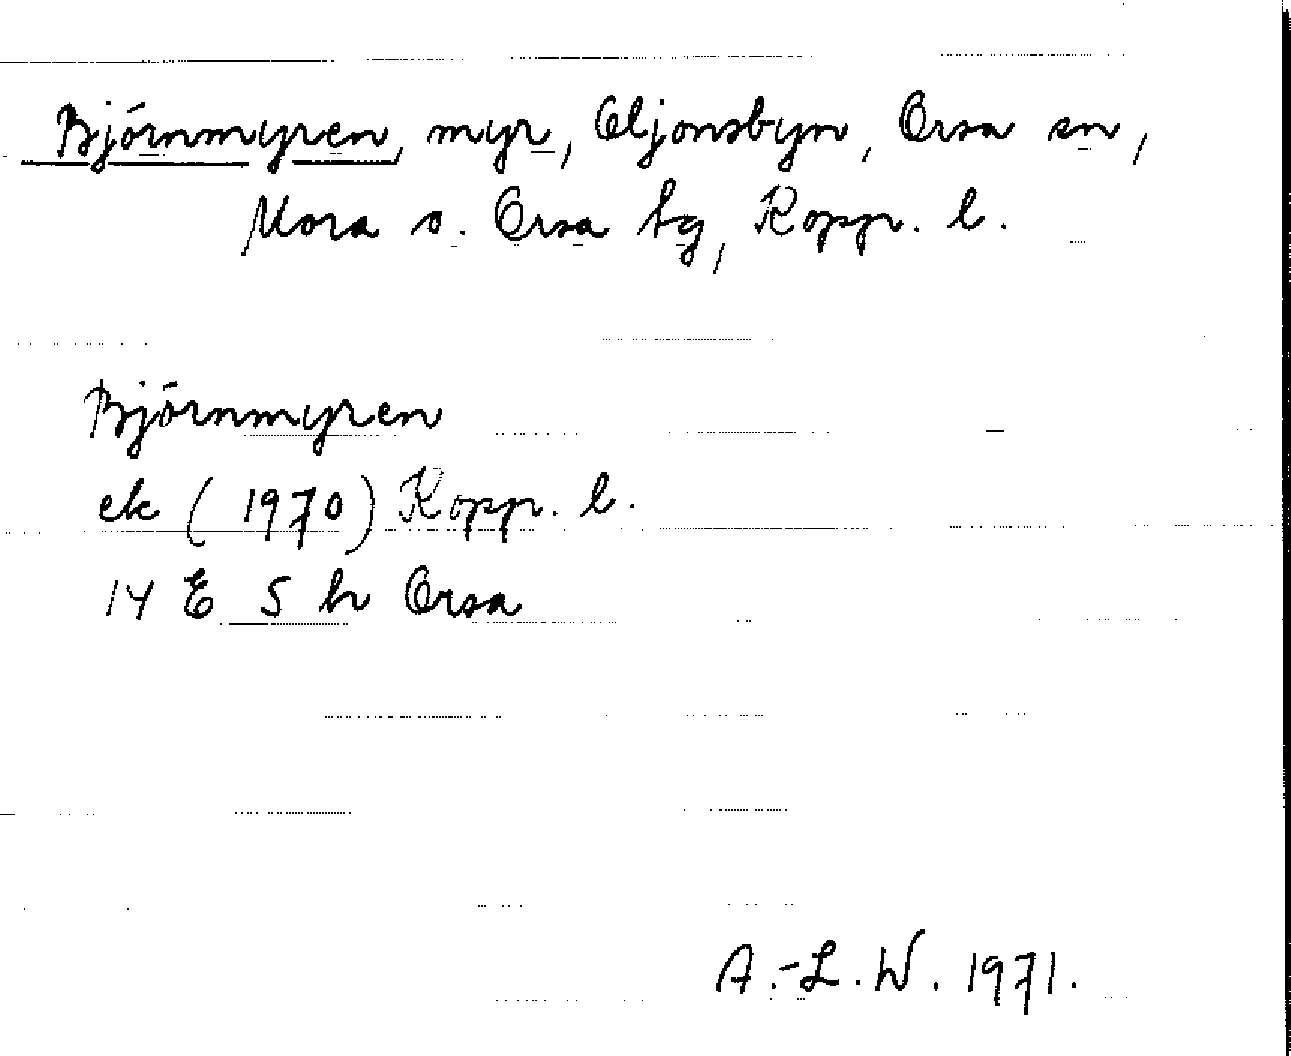 Björnmyren, myr, Oljonsbyn, Orsa sn,
Mora o. Orsa tg, Kopp. l.
Björnmyren
ek (1970) Kopp. l.
14 E 5 h Orsa
A.-L. W. 1971.